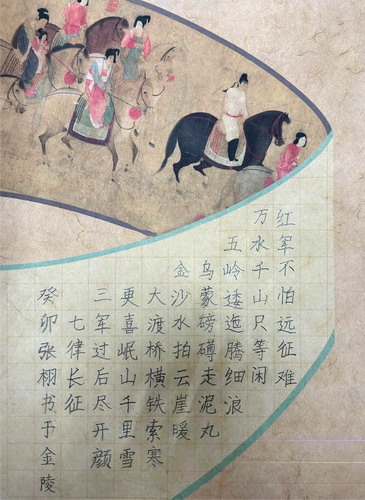 红军不怕远征难
万水千山只等闲
五岭逶迤腾细浪
乌蒙磅礴走泥丸
金沙水拍云崖暖
大渡桥横铁索寒
更喜岷山千里雪
三军过后尽开颜
七律长征
癸卯张栩书于金陵